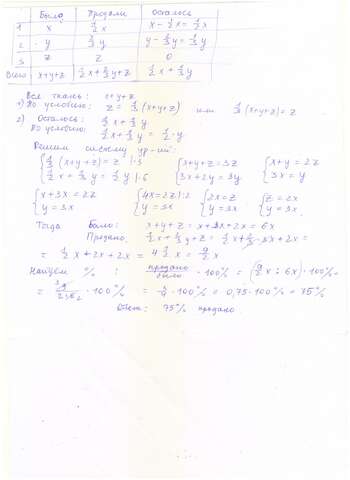 Было Продали Осталось
1 x 1/2 x x - 1/2 x = 1/2 x
2 y 2/3 y y - 2/3 y = 1/3 y
3 z z 0
Всего x+y+z 1/2 x + 2/3 y + z 1/2 x + 1/3 y
Вся ткань: x+y+z
1) По условию: z = 1/3 (x+y+z) или 1/3 (x+y+z) = z
2) Осталось: 1/2 x + 1/3 y
По условию: 1/2 x + 1/3 y = 1/2 · y
Решим систему ур-ний:
{ 1/3 (x+y+z) = z |·3 { x+y+z = 3z { x+y = 2z
{ 1/2 x + 1/3 y = 1/2 y |·6 { 3x+2y = 3y { 3x = y
{ x+3x = 2z { 4x = 2z |:2 { 2x = z { z = 2x
{ y = 3x { y = 3x { y = 3x { y = 3x.
Тогда Было: x+y+z = x+3x+2x = 6x
Продано: 1/2 x + 2/3 y + z = 1/2 x + 2/3 · 3x + 2x =
= 1/2 x + 2x + 2x = 4 1/2 x = 9/2 x
Найдём %: продано/было · 100% = (9/2 x : 6x) · 100% =
· 100% = 3/4 · 100% = 0,75 · 100% = 75%
Ответ: 75% продано